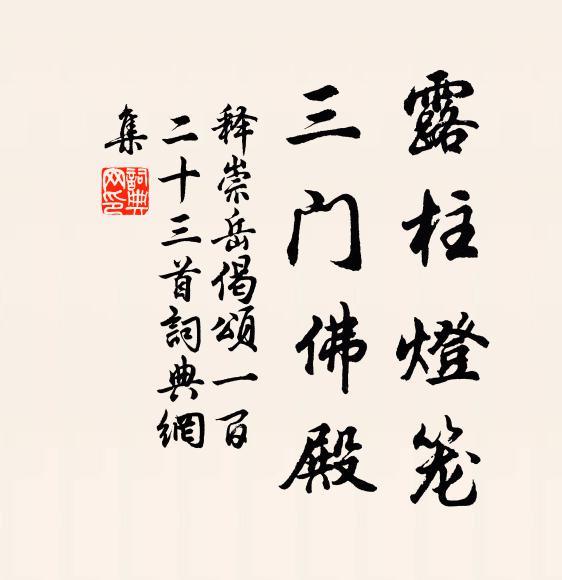 露柱燈笼
三门佛殿
释崇岳偈頌一百
二十三首詞典網
集
詞典
网印